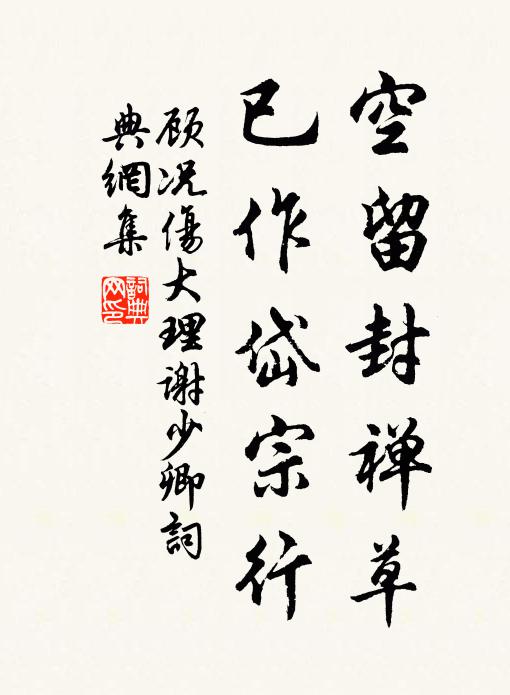 空留封禅草
已作岱宗行
顾况傷大理谢少卿詞
典網集
詞典
网印